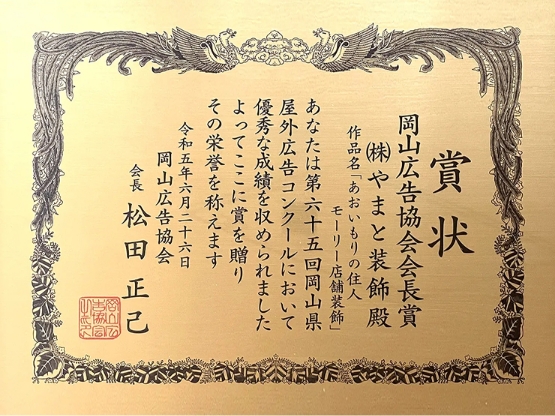 賞状
岡山広告協会会長賞
㈱やまと装飾殿
作品名「あおいもりの住人
モーリー店舗装飾」
あなたは第六十五回岡山県
屋外広告コンクールにおいて
優秀な成績を収められました
よってここに賞を贈り
その栄誉を称えます
令和五年六月二十六日
岡山広告協会
会長 松田正己